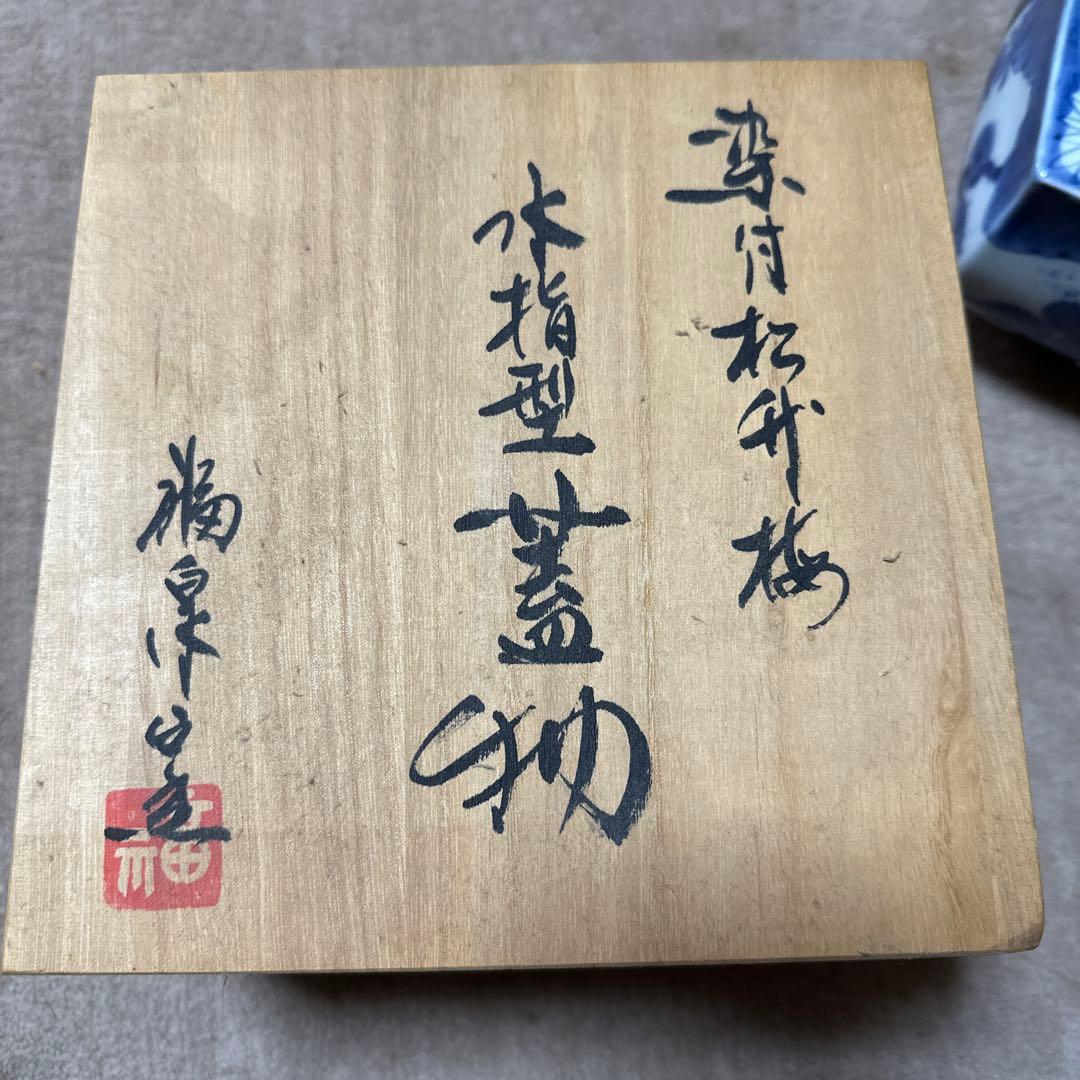 染付松竹梅
水指型蓋物
福泉造
福